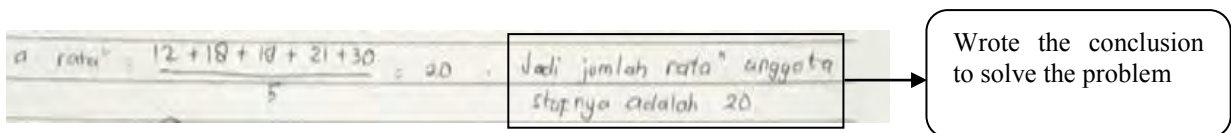 a rata" : 12 + 18 + 19 + 21 + 30 = 20 .
5
Jadi jumlah rata" anggota
stapnya adalah 20
Wrote the conclusion
to solve the problem